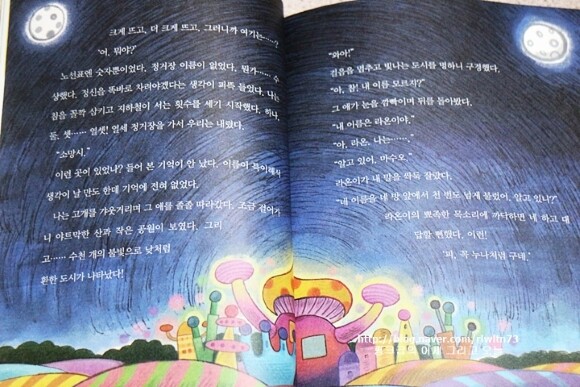 크게 뜨고, 더 크게 뜨고, 그러니까 여기는……?
"어, 뭐야?"
노선표엔 숫자뿐이었다. 정거장 이름이 없었다. 뭔가…… 수
상했다. 정신을 똑바로 차려야겠다는 생각이 퍼뜩 들었다. 나는
침을 꼴깍 삼키고 지하철이 서는 횟수를 세기 시작했다. 하나,
둘, 셋…… 열셋! 열세 정거장을 가서 우리는 내렸다.
"소망시."
이런 곳이 있었나? 들어 본 기억이 안 났다. 이름이 특이해서
생각이 날 만도 한데 기억에 전혀 없었다.
나는 고개를 갸웃거리며 그 애를 졸졸 따라갔다. 조금 걸어가
니 야트막한 산과 작은 공원이 보였다. 그리
고…… 수천 개의 불빛으로 낮처럼
환한 도시가 나타났다!
"와아!"
걸음을 멈추고 빛나는 도시를 멍하니 구경했다.
"아, 참! 내 이름 모르지?"
그 애가 눈을 깜빡이며 뒤를 돌아봤다.
"내 이름은 라온이야."
"아, 라온. 나는……."
"알고 있어, 마수오."
라온이가 내 말을 싹둑 잘랐다.
"네 이름을 네 방 앞에서 천 번도 넘게 불렀어. 알고 있니?"
라온이의 뾰족한 목소리에 까닥하면 네 하고 대
답할 뻔했다. 이런!
'피, 꼭 누나처럼 구네.'
http://blog.naver.com/dlwltn73